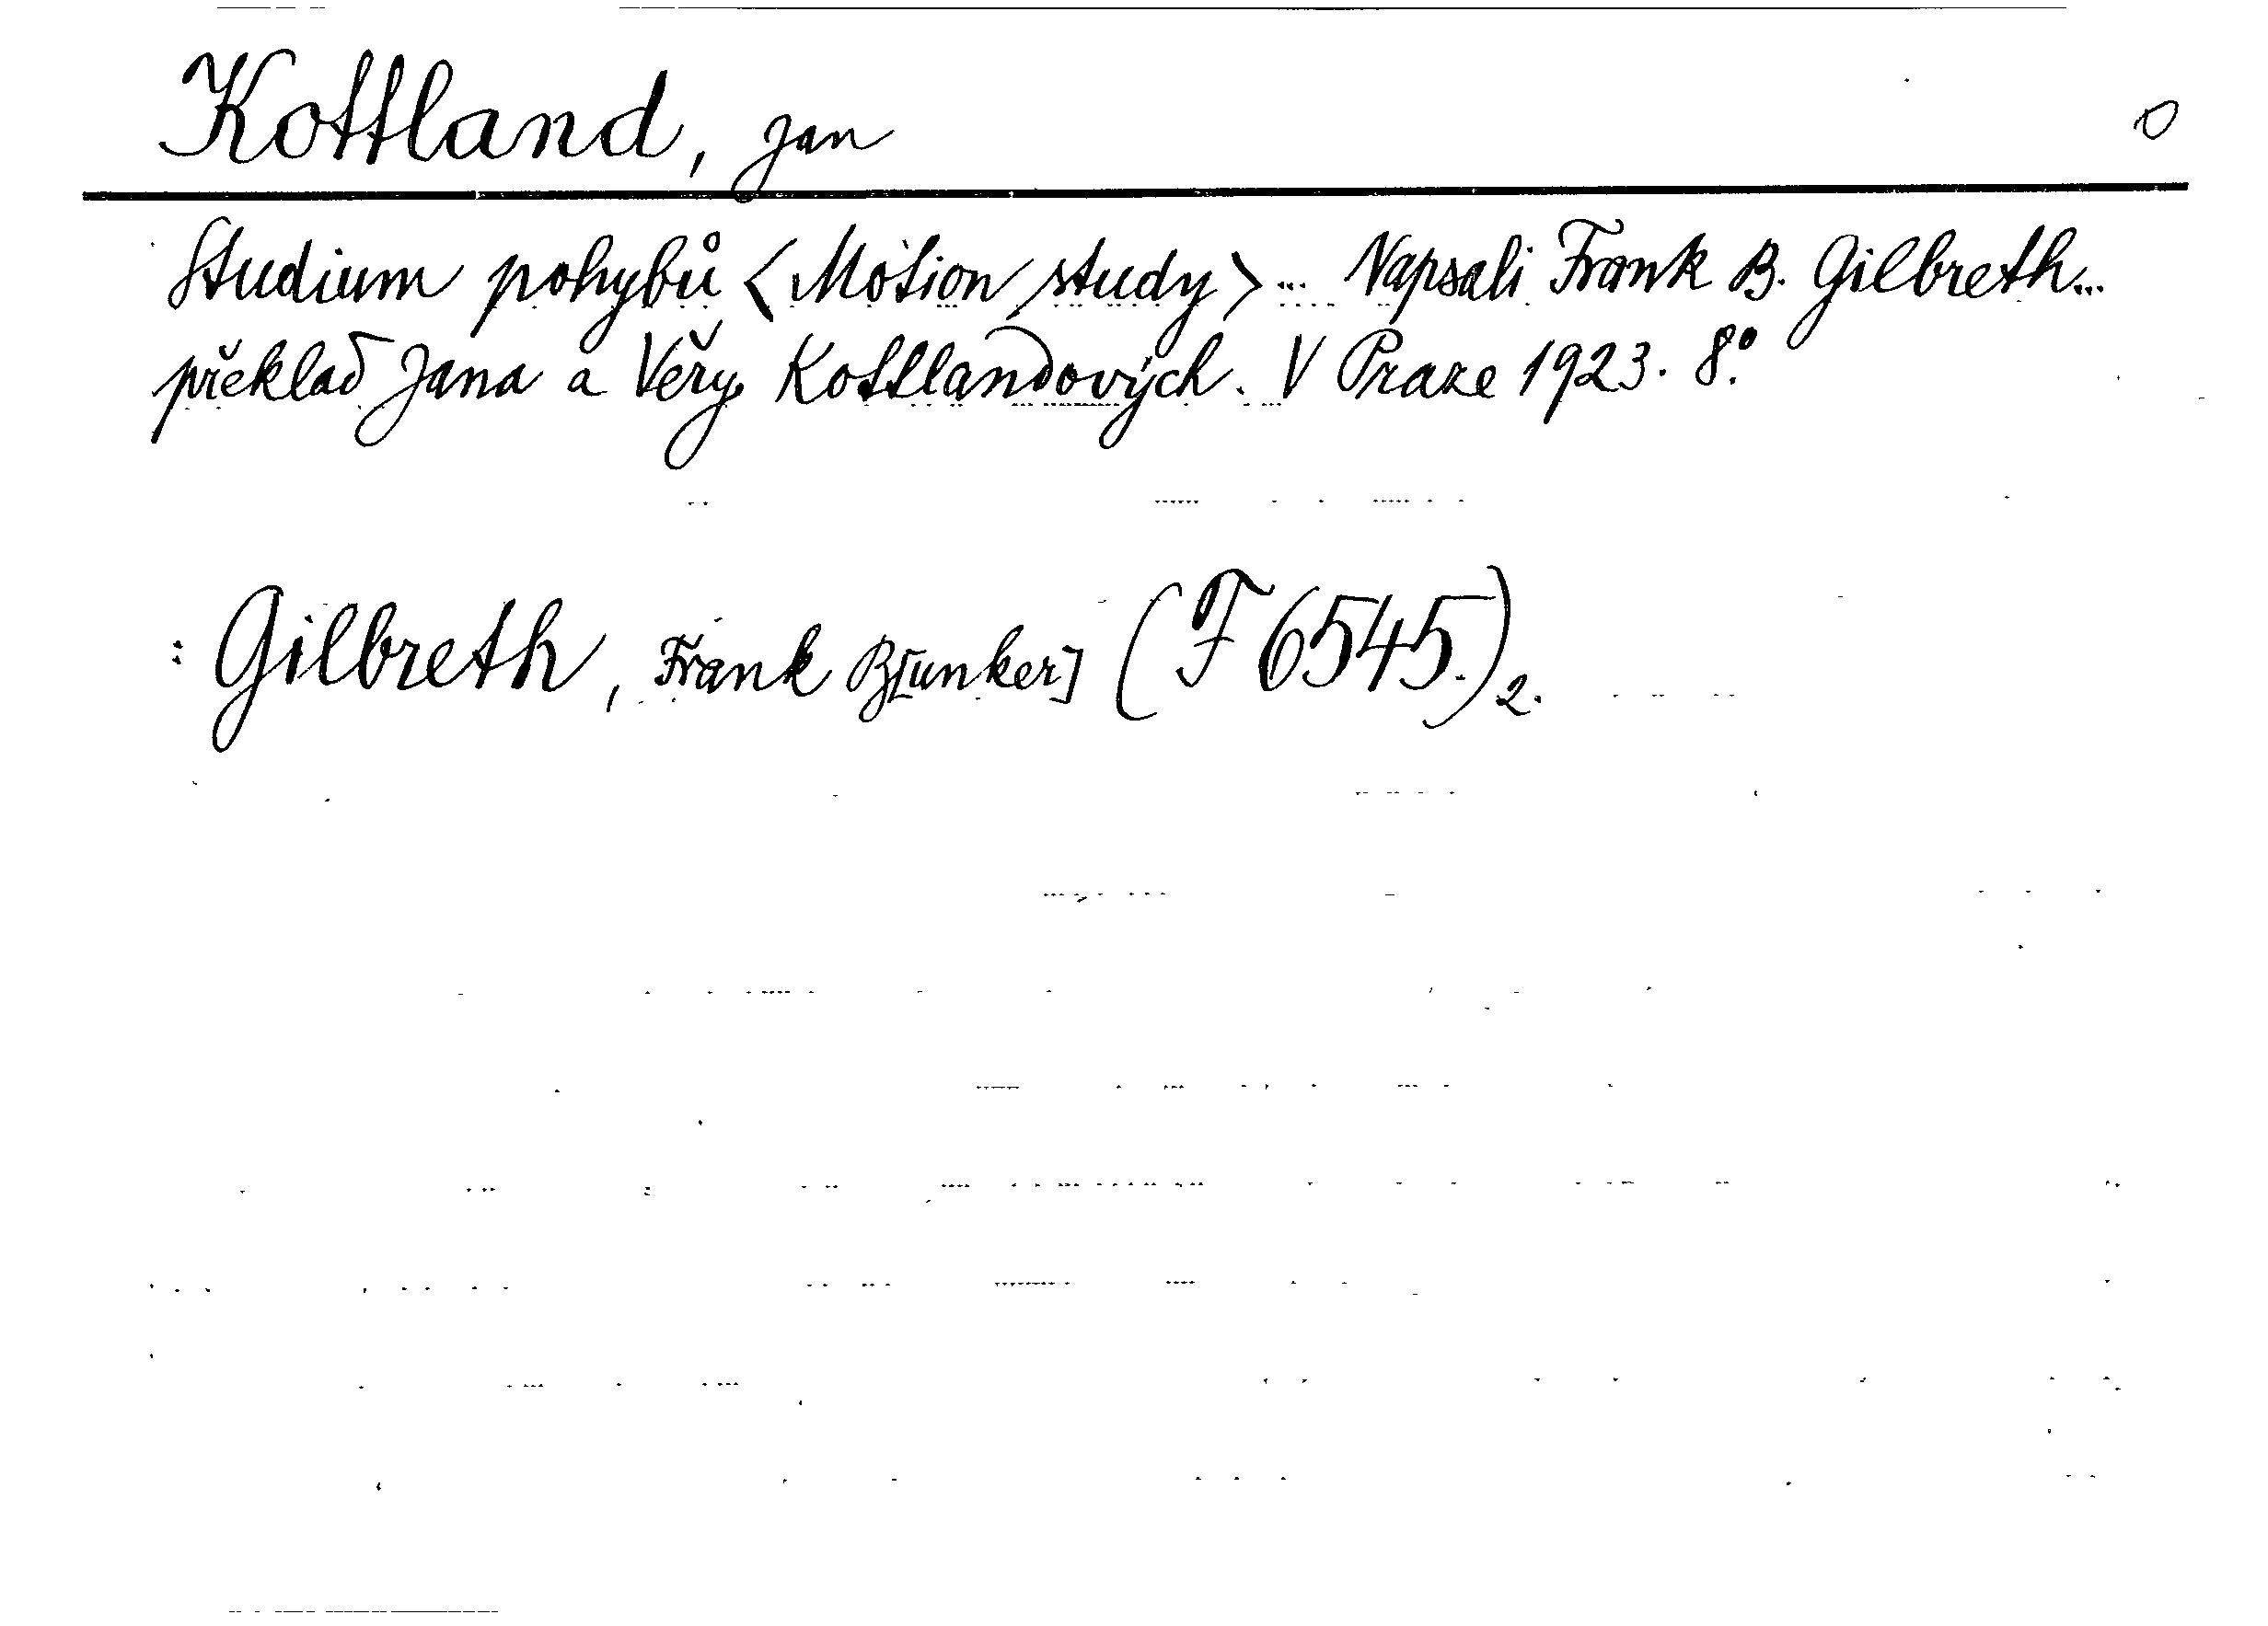 Kottland, Jan
Studium pohybů <Motion study> ... Napsali Frank B. Gilbreth...
překlad Jana a Věry Kottlandových. V Praze 1923. 8°.
: Gilbreth, Frank B[unker] (F 6545.)2.